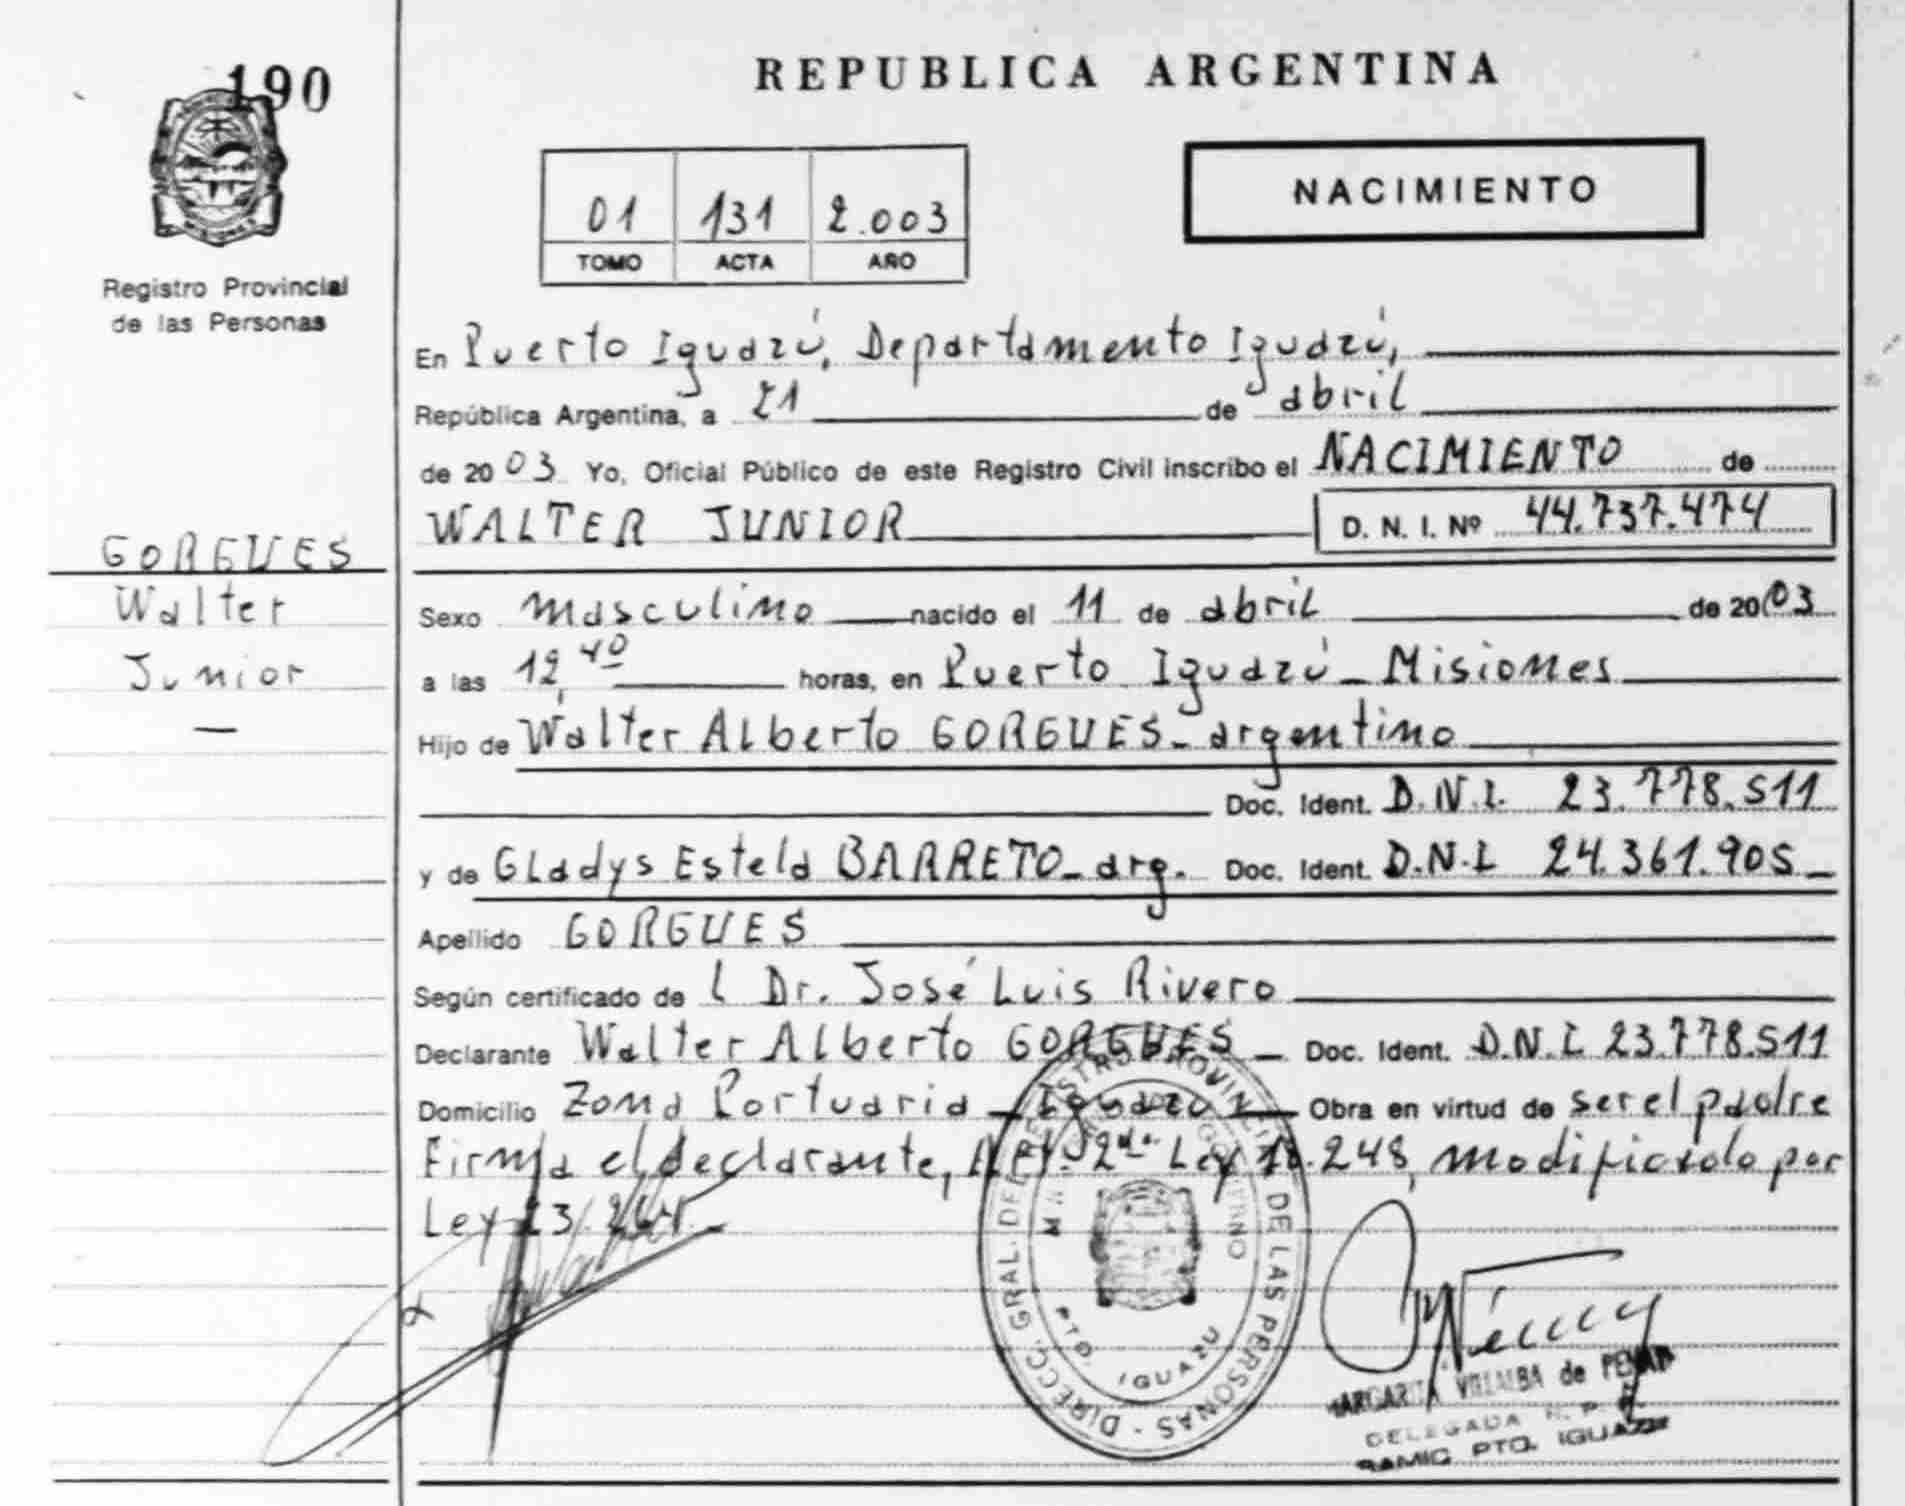 190
REPUBLICA ARGENTINA
01 131 2.003
TOMO ACTA AÑO
NACIMIENTO
Registro Provincial
de las Personas
En Puerto Iguazú, Departamento Iguazú,
República Argentina, a 21 de abril
de 2003 Yo, Oficial Público de este Registro Civil inscribo el NACIMIENTO de
WALTER JUNIOR D. N. I. Nº 44.737.474
GORGUES
Walter
Junior
Sexo masculino nacido el 11 de abril de 2003
a las 12,40 horas, en Puerto Iguazú - Misiones
Hijo de Walter Alberto GORGUES - argentino
Doc. Ident. D.N.I. 23.778.511
y de Gladys Estela BARRETO - arg. Doc. Ident. D.N.I 24.361.905 -
Apellido GORGUES
Según certificado de l Dr. José Luis Rivero
Declarante Walter Alberto GORGUES - Doc. Ident. D.N.I. 23.778.511
Domicilio Zona Portuaria - Iguazú - Obra en virtud de ser el padre
Firma el declarante, Art. 2do Ley 18.248, modificado por
Ley 23.264.-
DIRECC. GRAL. DEL REGISTRO PROVINCIAL DE LAS PERSONAS
GOBIERNO
PTO. IGUAZU
MARGARITA VILLALBA de
DELEGADA R. P. P.
RAMIC PTO. IGUAZU